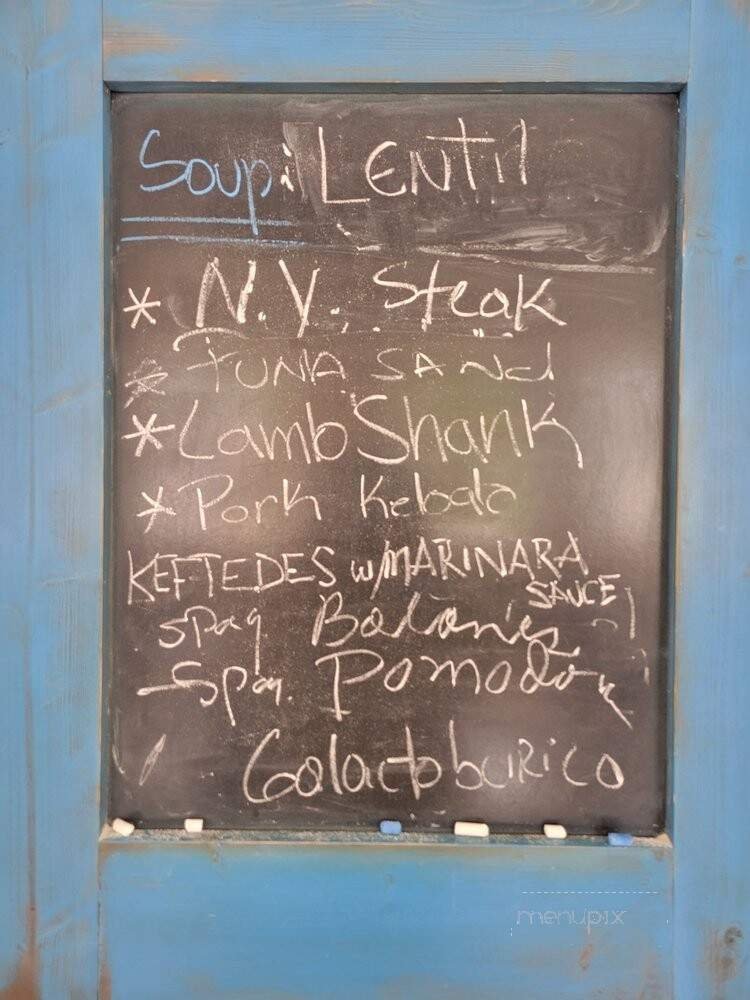 Soup: LENTIL
* N.Y. Steak
* TUNA SANd
* Lamb Shank
* Pork Kebab
KEFTEDES w/MARINARA
SAUCE
spag Bolones
- Spag. Pomodor
Galactoburico
menupix